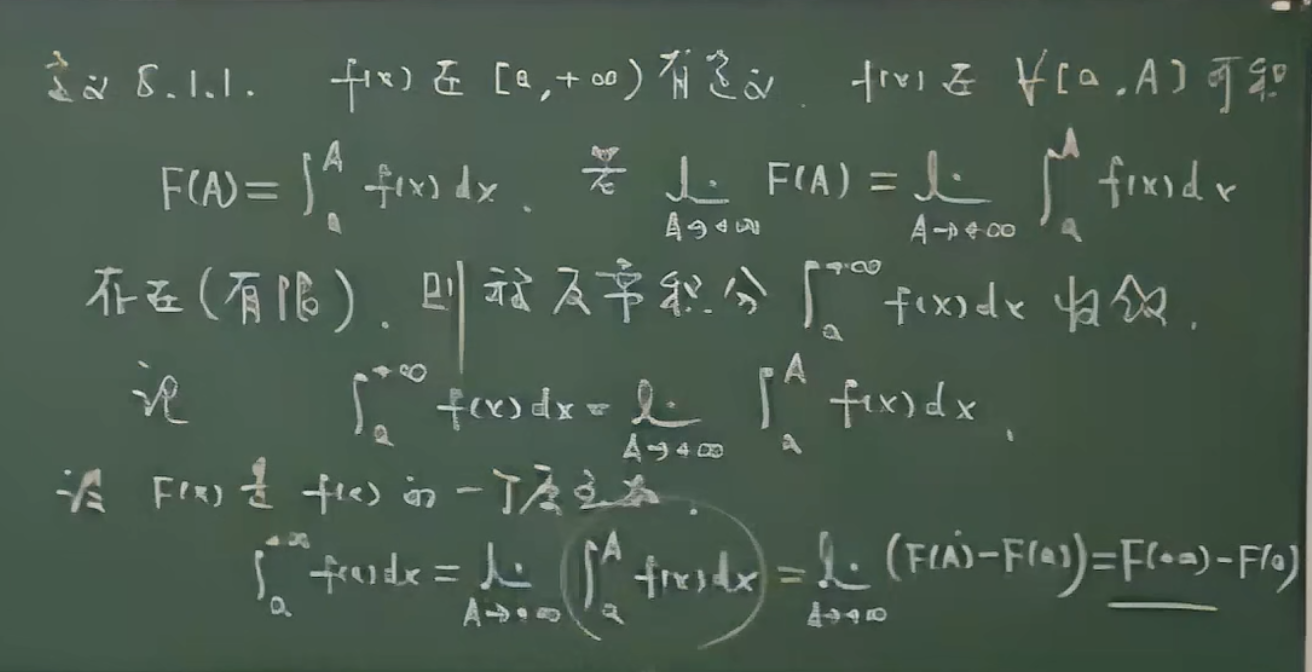 定义 8.1.1. f(x) 在 [a,+∞) 有定义. f(x) 在 ∀[a,A] 可积
F(A)=∫_a^A f(x)dx. 若 lim_{A→+∞} F(A) = lim_{A→+∞} ∫_a^A f(x)dx
存在(有限). 则称反常积分 ∫_a^{+∞} f(x)dx 收敛.
记 ∫_a^{+∞} f(x)dx = lim_{A→+∞} ∫_a^A f(x)dx.
设 F(x) 是 f(x) 的一个原函数.
∫_a^{+∞} f(x)dx = lim_{A→+∞} (∫_a^A f(x)dx) = lim_{A→+∞} (F(A)-F(a)) = F(+∞)-F(a)